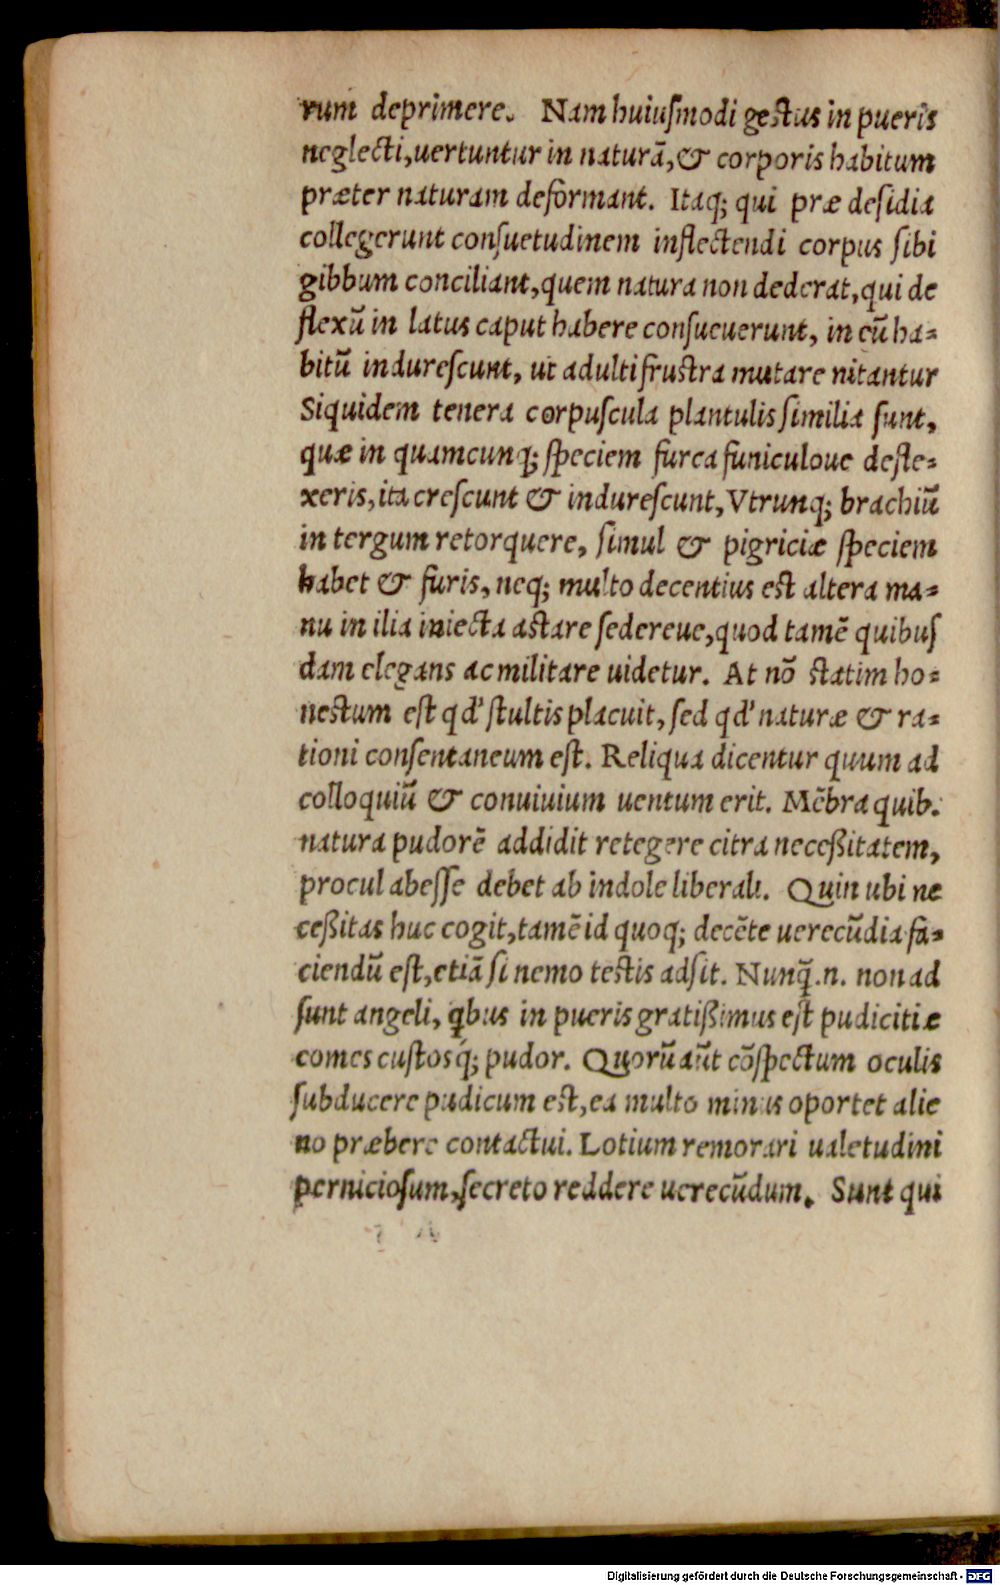 rum deprimere. Nam huiuſmodi geſtus in pueris
neglecti,uertuntur in naturā,& corporis habitum
præter naturam deformant. Itaq; qui præ deſidia
collegerunt conſuetudinem inflectendi corpus ſibi
gibbum conciliant,quem natura non dederat,qui de
flexū in latus caput habere conſueuerunt, in eū ha=
bitū indureſcunt, ut adulti fruſtra mutare nitantur
Siquidem tenera corpuſcula plantulis ſimilia ſunt,
quæ in quamcunq; ſpeciem furca funiculoue defle=
xeris,ita creſcunt & indureſcunt,Vtrunq; brachiū
in tergum retorquere, ſimul & pigriciæ ſpeciem
habet & furis, neq; multo decentius eſt altera ma=
nu in ilia iniecta aſtare ſedereue,quod tamē quibuſ
dam elegans ac militare uidetur. At nō ſtatim ho=
neſtum eſt qd' ſtultis placuit, ſed qd' naturæ & ra=
tioni conſentaneum eſt. Reliqua dicentur quum ad
colloquiū & conuiuium uentum erit. Mēbra quib.
natura pudorē addidit retegere citra neceßitatem,
procul abeſſe debet ab indole liberali. Quin ubi ne
ceßitas huc cogit,tamē id quoq; decēte uerecūdia fa=
ciendū eſt,etiā ſi nemo teſtis adſit. Nunq̄.n. non ad
ſunt angeli, q̇bus in pueris gratißimus eſt pudicitiæ
comes cuſtosq́; pudor. Quorū aūt cōſpectum oculis
ſubducere pudicum eſt,ea multo minus oportet alie
no præbere contactui. Lotium remorari ualetudini
perniciоſum,ſecreto reddere uerecūdum. Sunt qui